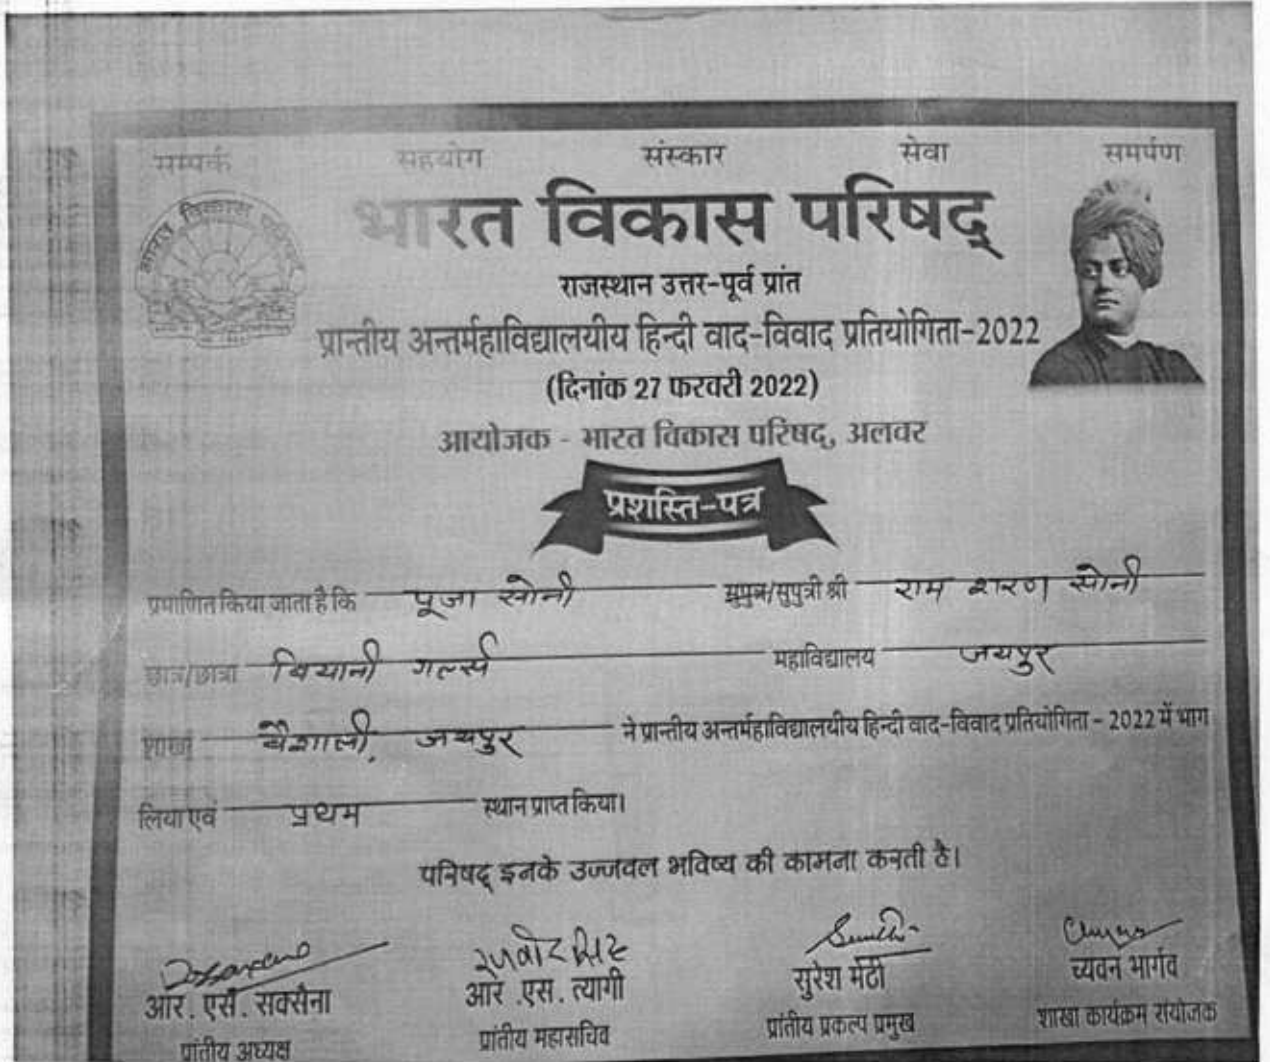 सम्पर्क सहयोग संस्कार सेवा समर्पण
भारत विकास परिषद्
भारत विकास परिषद्
राजस्थान उत्तर-पूर्व प्रांत
प्रान्तीय अन्तर्महाविद्यालयीय हिन्दी वाद-विवाद प्रतियोगिता-2022
(दिनांक 27 फरवरी 2022)
आयोजक - भारत विकास परिषद्, अलवर
प्रशस्ति-पत्र
प्रमाणित किया जाता है कि पूजा सोनी सुपुत्र/सुपुत्री श्री राम शरण सोनी
छात्र/छात्रा बियानी गर्ल्स महाविद्यालय जयपुर
शाखा वैशाली, जयपुर ने प्रान्तीय अन्तर्महाविद्यालयीय हिन्दी वाद-विवाद प्रतियोगिता - 2022 में भाग
लिया एवं प्रथम स्थान प्राप्त किया।
परिषद् इनके उज्जवल भविष्य की कामना करती है।
आर. एस. सक्सेना आर .एस. त्यागी सुरेश मेंदी च्यवन भार्गव
प्रांतीय अध्यक्ष प्रांतीय महासचिव प्रांतीय प्रकल्प प्रमुख शाखा कार्यक्रम संयोजक